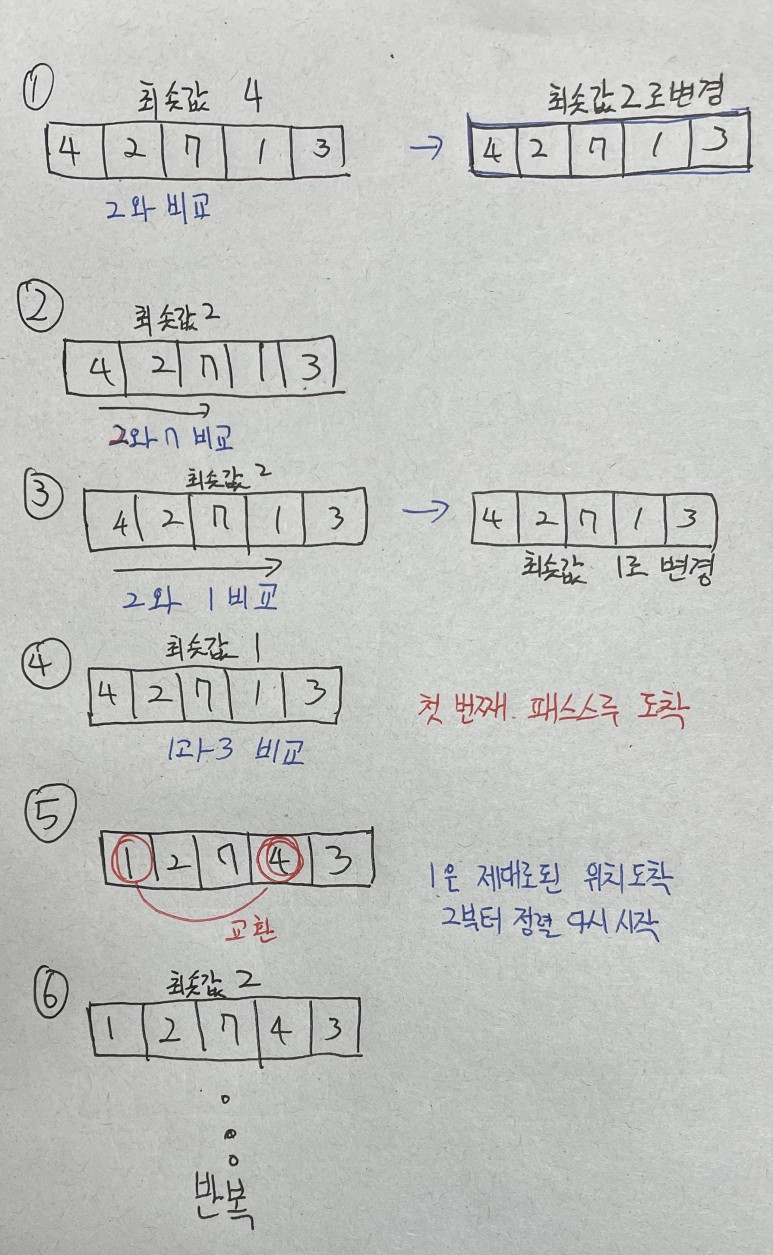 ① 최솟값 4
4 2 7 1 3
2와 비교
→ 최솟값 2로 변경
4 2 7 1 3
② 최솟값 2
4 2 7 1 3
2와 7 비교
③ 최솟값 2
4 2 7 1 3
2와 1 비교
→ 4 2 7 1 3
최솟값 1로 변경
④ 최솟값 1
4 2 7 1 3
1과 3 비교
첫 번째. 패스스루 도착
⑤
1 2 7 4 3
교환
1은 제대로된 위치 도착
2부터 정렬 다시 시작
⑥ 최솟값 2
1 2 7 4 3
반복